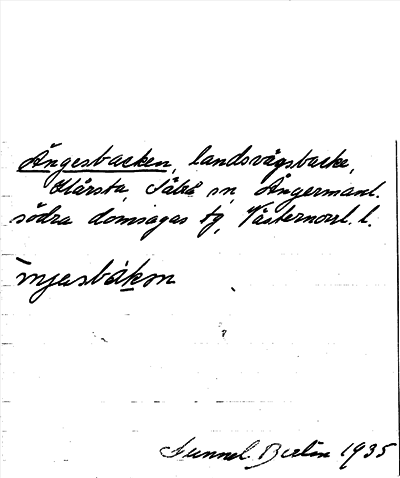 Ängesbacken, landsvägsbacke,
Hårsta, Säbrå sn, Ångermanl.
södra domsagas tg, Västernorrl. l.
Gunnel Berlin 1935